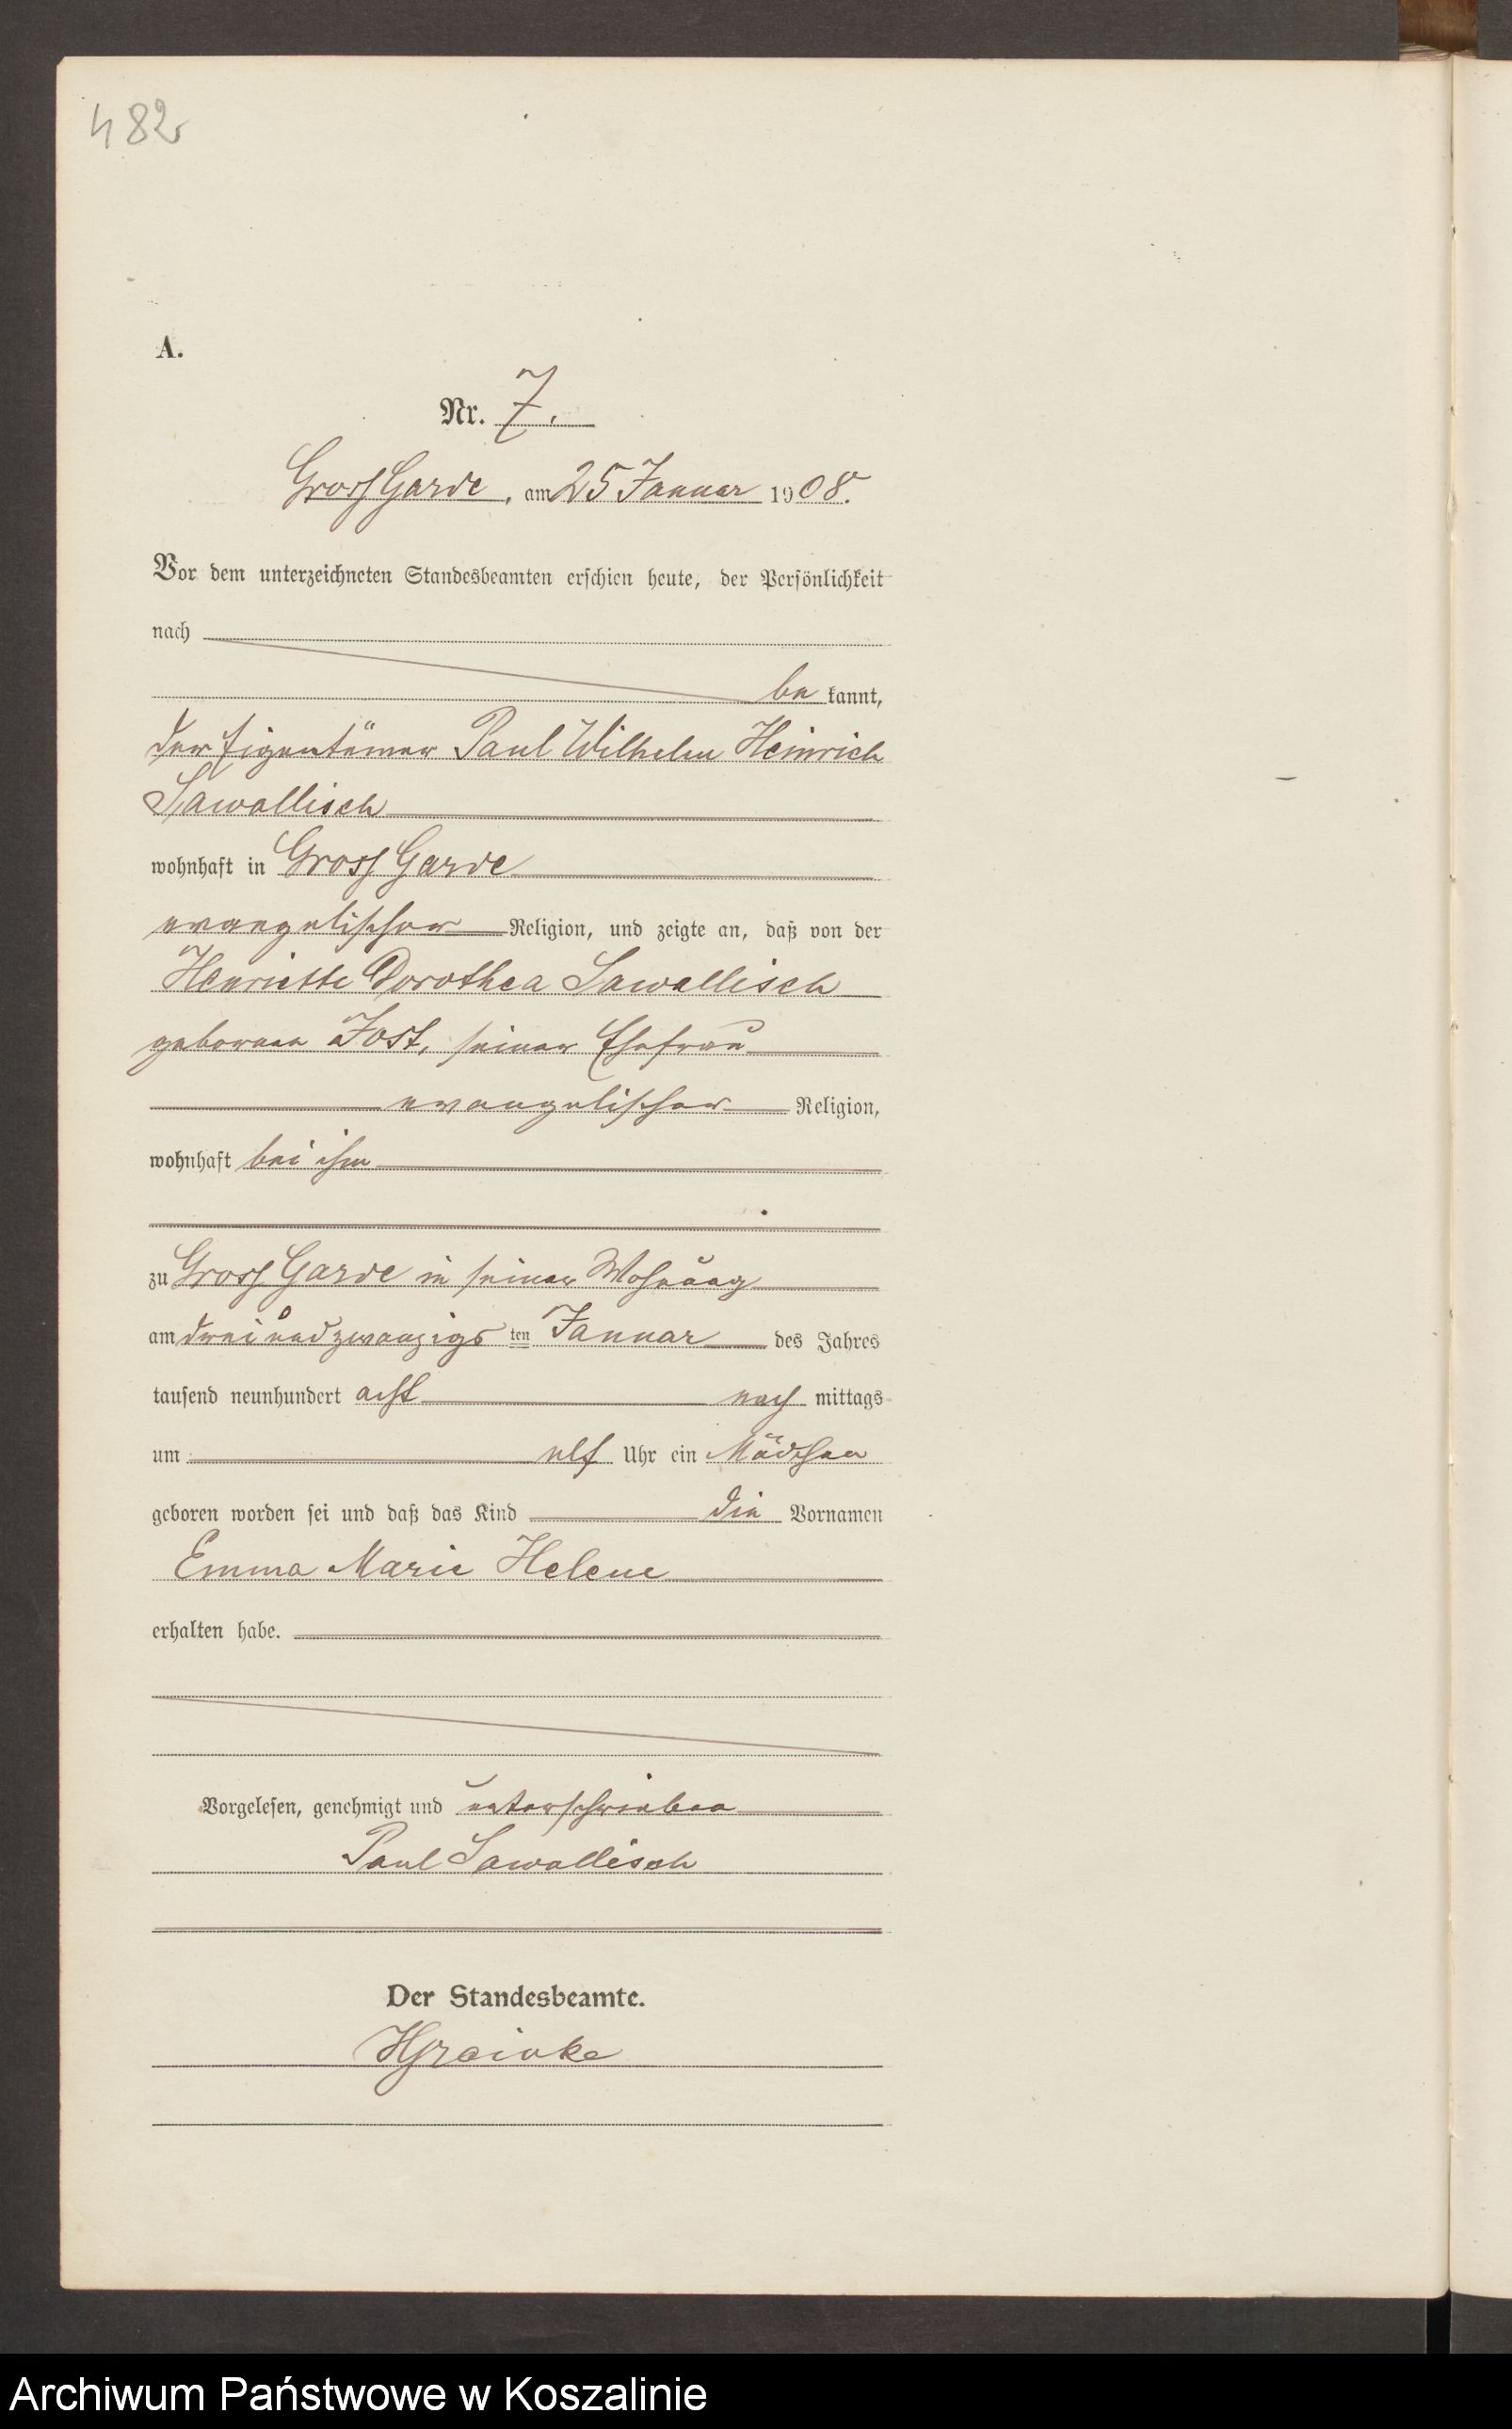 482
A.
Nr. 7.
Gross Garde, am 25 Januar 1908.
Vor dem unterzeichneten Standesbeamten erschien heute, der Persönlichkeit
nach
be kannt,
der Eigentümer Paul Wilhelm Heinrich
Sawallisch
wohnhaft in Gross Garde
evangelischer Religion, und zeigte an, daß von der
Henriette Dorothea Sawallisch
geborenen Jost, seiner Ehefrau
evangelischer Religion,
wohnhaft bei ihm
zu Gross Garde in seiner Wohnung
am dreiundzwanzigs ten Januar des Jahres
tausend neunhundert acht nach mittags
um elf Uhr ein Mädchen
geboren worden sei und daß das Kind die Vornamen
Emma Marie Helene
erhalten habe.
Vorgelesen, genehmigt und unterschrieben
Paul Sawallisch
Der Standesbeamte.
Archiwum Państwowe w Koszalinie